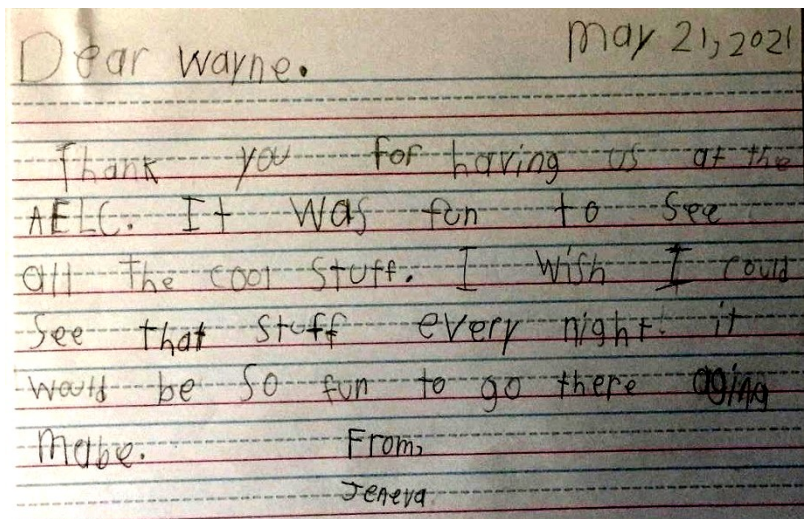 Dear Wayne. May 21, 2021
Thank you for having us at the
AELC. It was fun to see
all the cool stuff. I wish I could
See that stuff every night. it
would be so fun to go there aging
mabe. From,
Jeneva